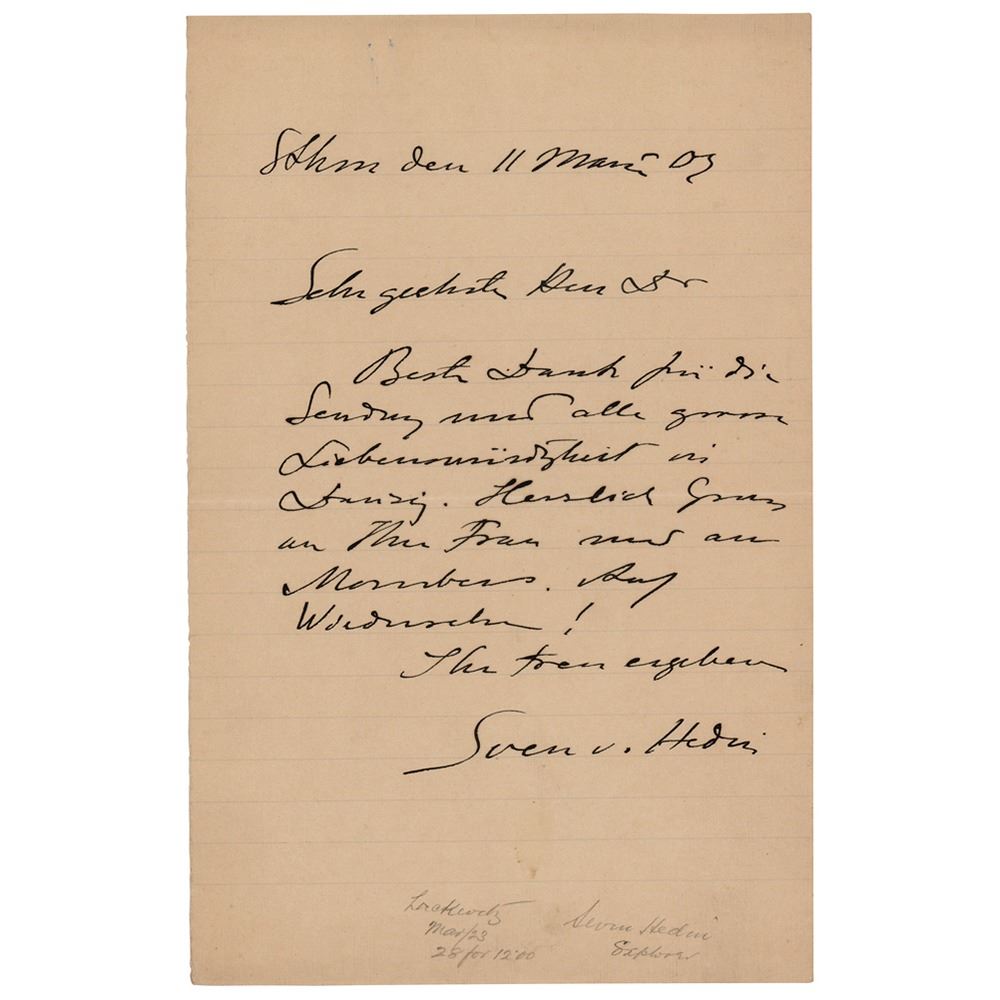 Sthm den 11 März 03
Sehr geehrter Herr Dr
Beste Dank für die
Sendung und alle grosse
Liebenswürdigkeit in
Danzig. Herzlich Gruss
an Ihre Frau und an
Auf
Wiedersehen!
Ihr treu ergeben
Sven v. Hedin
Mar/23
28 for 12.00
Seven Hedin
Explorer